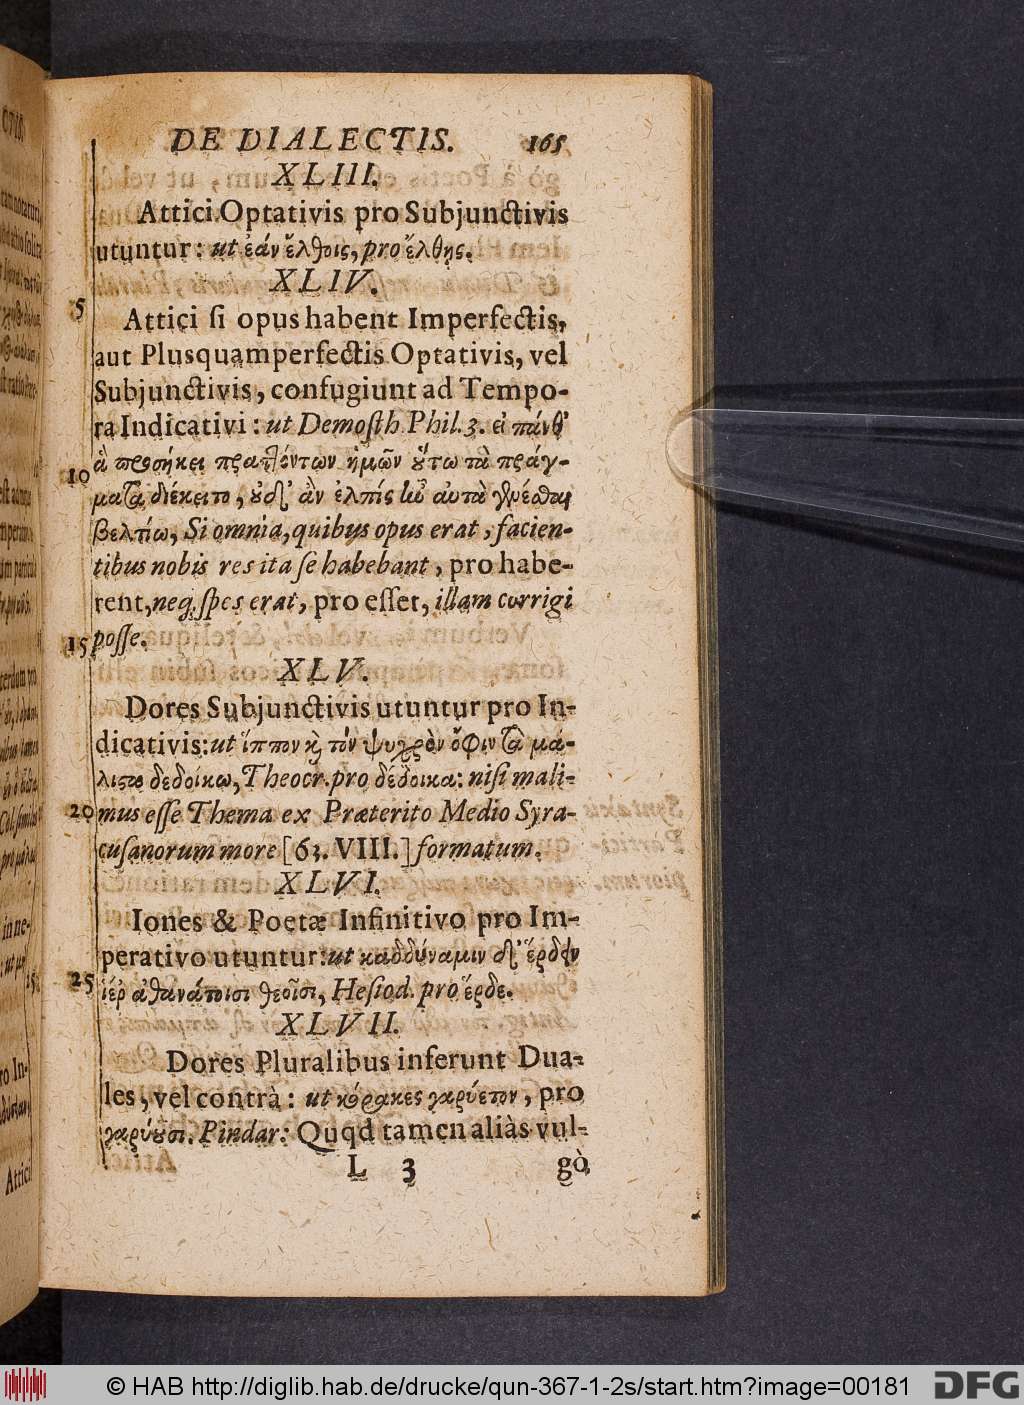 DE DIALECTIS. 165
XLIII.
Attici Optativis pro Subjunctivis
utuntur: ut ἐάν ἔλθοις, pro ἔλθῃς.
XLIV.
5
Attici ſi opus habent Imperfectis,
aut Plusquamperfectis Optativis, vel
Subjunctivis, confugiunt ad Tempo-
ra Indicativi: ut Demoſth. Phil. 3. εἰ πάνθ'
10
ἃ προσήκει πραττόντων ἡμῶν ὅτω τὰ πράγ-
ματα διέκειτο, ȣ̓δ' ἂν ἐλπίς ἦν αυτὰ γενέσθαι
βελτίω, Si omnia, quibus opus erat, facien-
tibus nobis res ita ſe habebant, pro habe-
rent, neq; ſpes erat, pro eſſet, illam corrigi
15
poſſe.
XLV.
Dores Subjunctivis utuntur pro In-
dicativis: ut ἵππον κ̀ τὸν ψυχρὸν ὄφιν τὰ μά-
λιστα δεδοίκω, Theocr. pro δέδοικα: niſi mali-
20
mus eſſe Thema ex Præterito Medio Syra-
cuſanorum more [63. VIII.] formatum.
XLVI.
Iones & Poetæ Infinitivo pro Im-
perativo utuntur: ut καδδύναμιν δ' ἔρδειν
25
ἱέρ ἀθανάτοισι θεοῖσι, Heſiod. pro ἔρδε.
XLVII.
Dores Pluralibus inferunt Dua-
les, vel contrà: ut κόρακες γαρύετον, pro
γαρύȣσι. Pindar: Quod tamen aliàs vul-
L 3 gò
© HAB http://diglib.hab.de/drucke/qun-367-1-2s/start.htm?image=00181 DFG